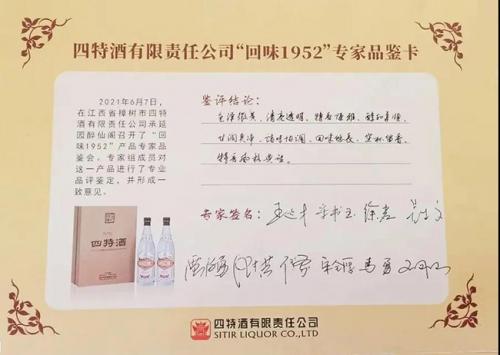 四特酒有限责任公司“回味1952”专家品鉴卡
2021年6月7日，
在江西省樟树市四特
酒有限责任公司承延
园醉仙阁召开了“回
味1952”产品专家品
鉴会。专家组成员对
这一产品进行了专业
品评鉴定，并形成一
致意见。
鉴评结论：
色泽微黄、清亮透明、特香幽雅、醇和柔顺、
甘润爽净、诸味协调、回味悠长、空杯留香、
特香风格典型。
专家签名：
四特酒
四特酒有限责任公司
SITIR LIQUOR CO.,LTD